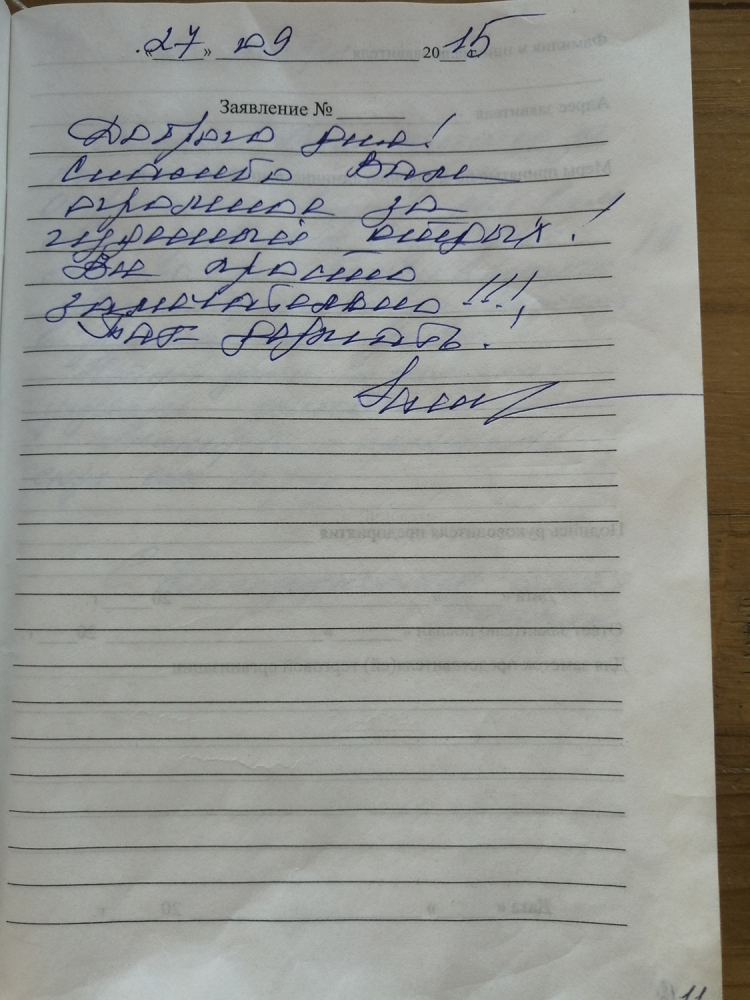 «27» 09 2015 г.
Заявление № ______
Доброго дня!
Спасибо Вам
огромное за
чудесный отдых!
Вы просто
замечательно!!!!
Так держать!